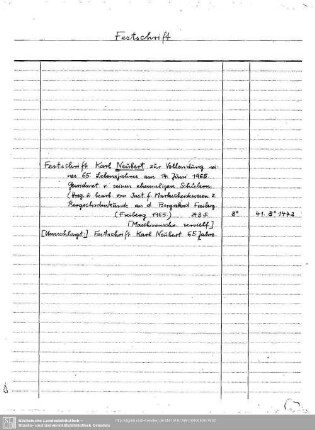 Festschrift
Festschrift Karl Neubert zur Vollendung sei-
nes 65. Lebensjahres am 14. Juni 1965.
Gewidmet v. seinen ehemaligen Schülern.
(Hrsg. u. bearb. vom Inst. f. Markscheidewesen u.
Bergschadenkunde an d. Bergakad. Freiberg.
(Freiberg 1965.) 8° 41. 8° 1442
(Maschinenschr. vervielf.)
[Umschlagt.:] Festschrift Karl Neubert 65 Jahre.
Sächsische Landesbibliothek -
Staats- und Universitätsbibliothek Dresden